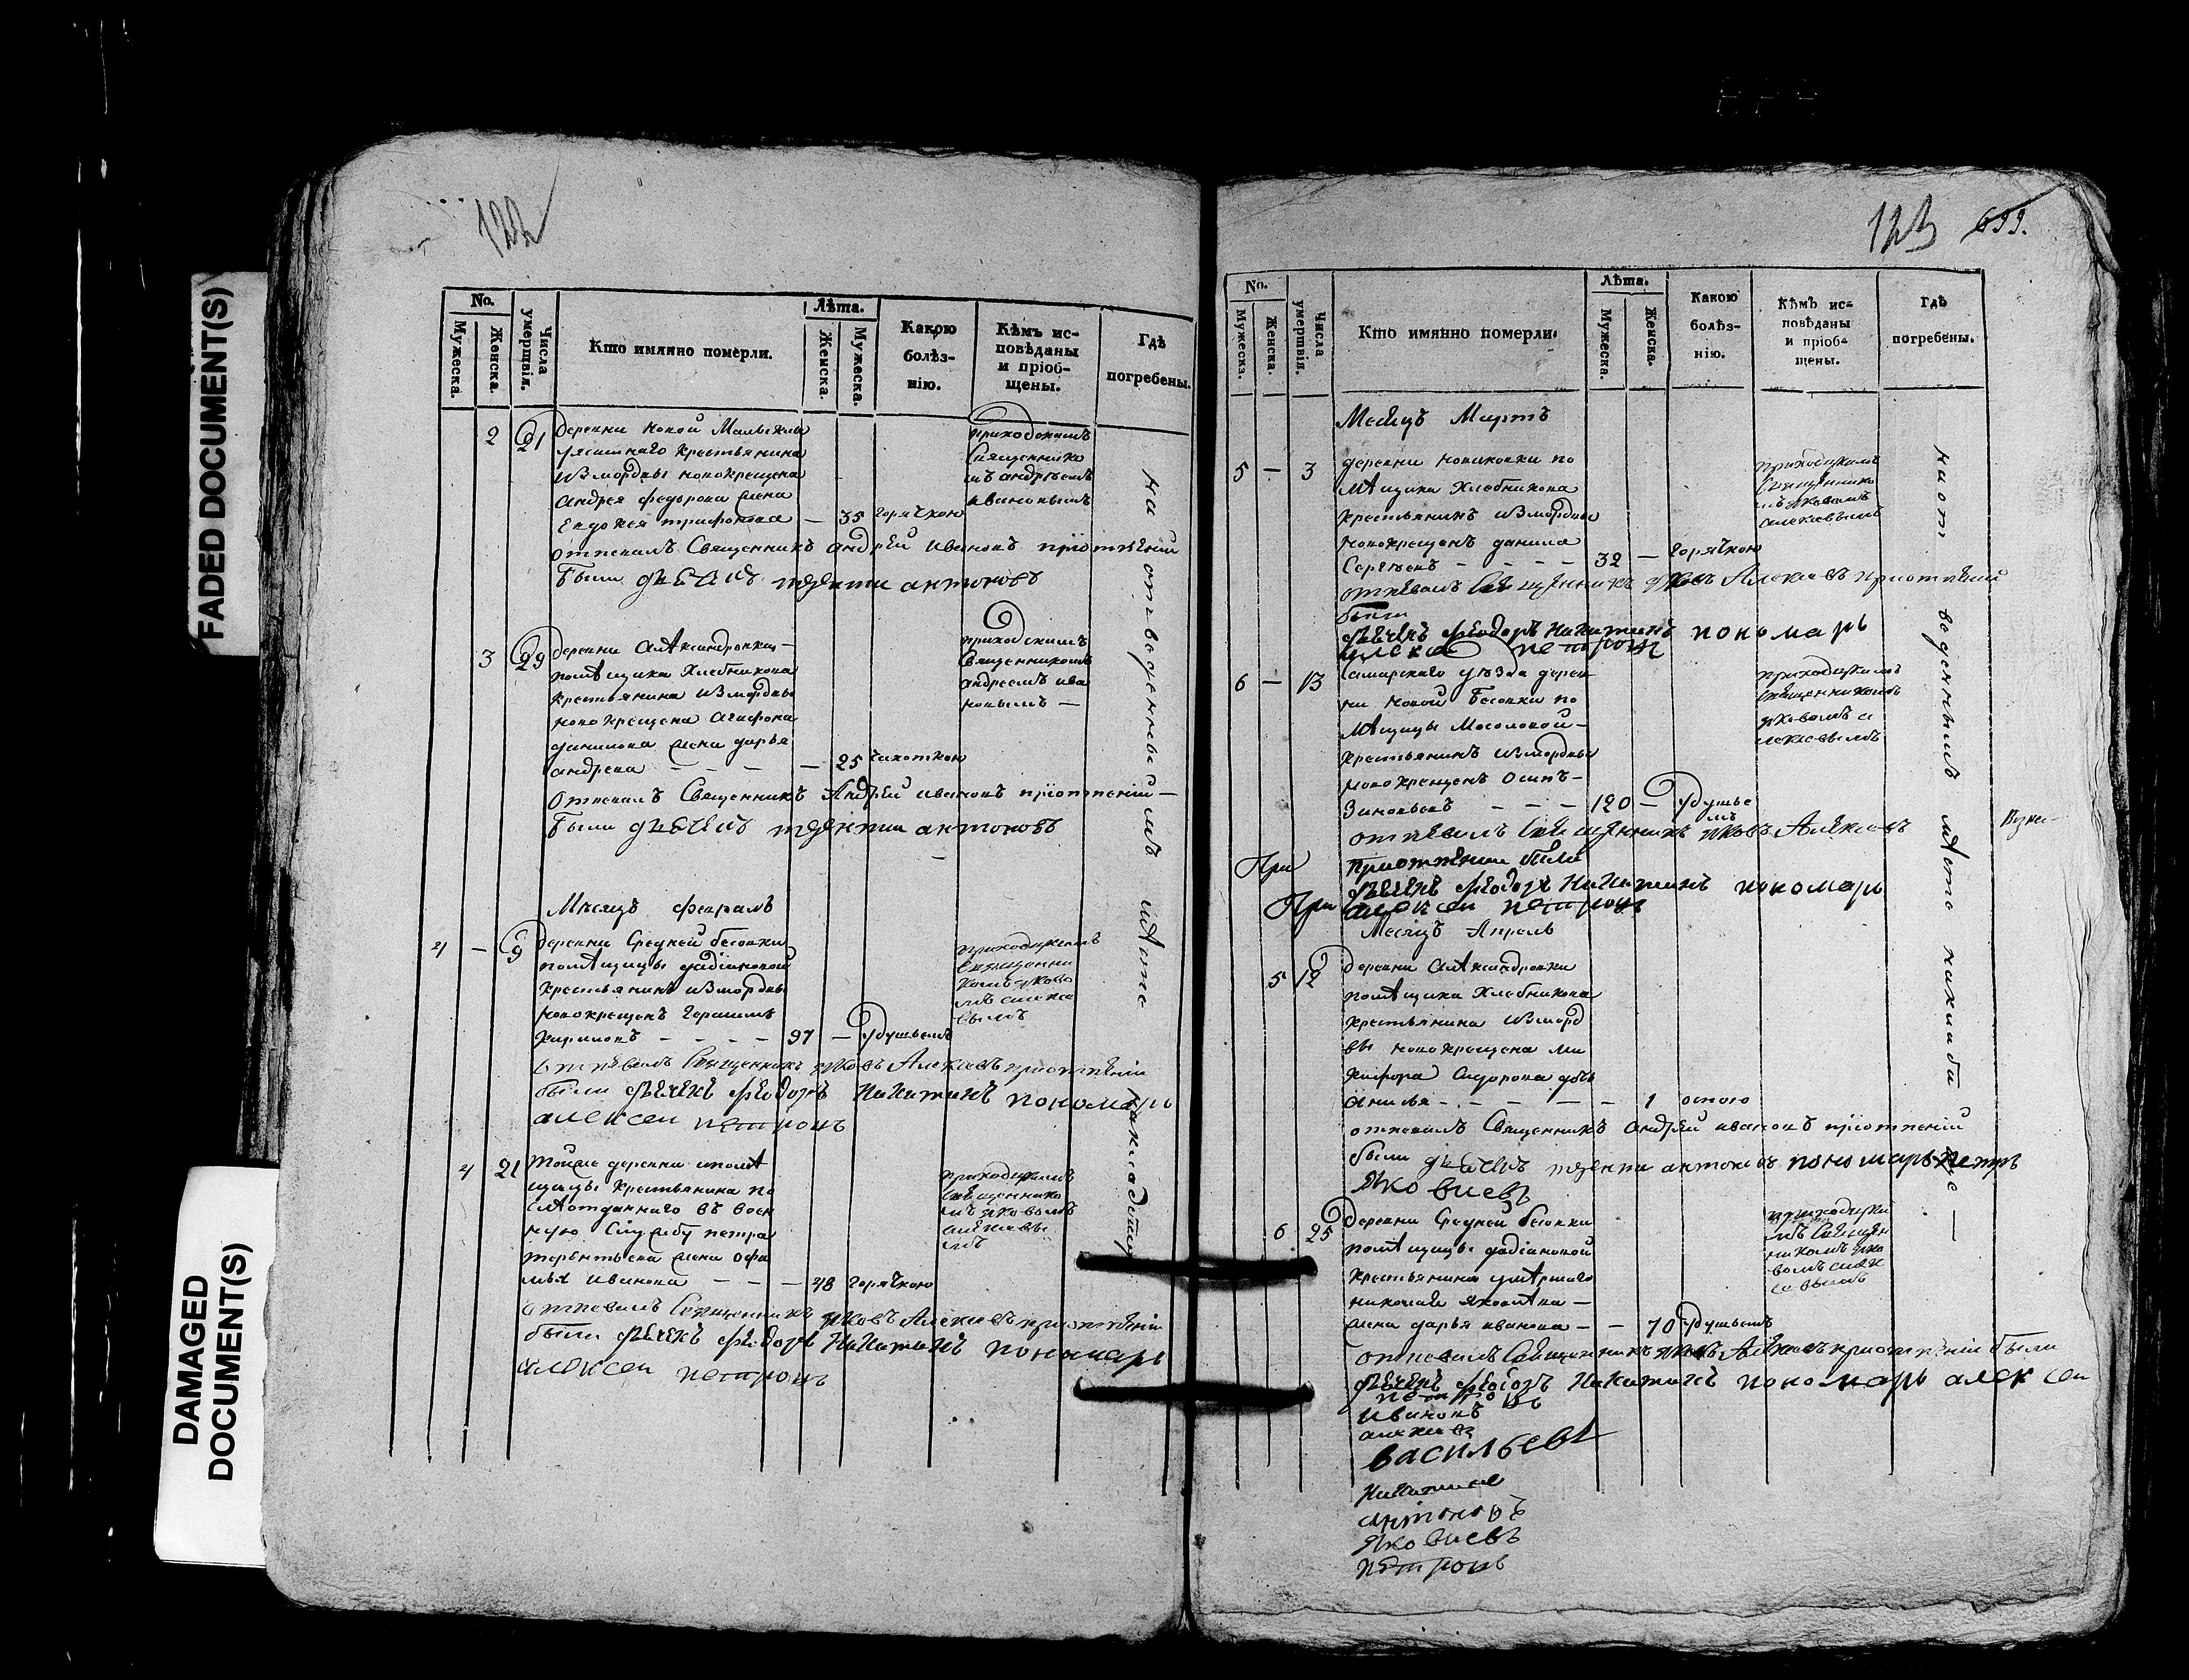 FADED DOCUMENT(S)
DAMAGED
DOCUMENT(S)
122
No.
Мужеска.
Женска.
Числа умертвія.
Кто имянно померли.
Лѣта.
Женска.
Мужеска.
Какою
болѣз-
нію.
Кѣмъ ис-
повѣданы
и пріоб-
щены.
Гдѣ
погребены.
2 21 деревни новой Малыклы
ясашнаго крестьянина
измордвы новокрещена
андрея федорова жена
Евдокея трифонова — 35 горячкою
приходскимъ
Священнико
мъ андреемъ
ивановымъ
отпевалъ Священникъ андрей ивановъ приотпеніи
были дьячекъ терентии антоновъ
3 29 деревни алѣксандровки —
помѣщика Хлебникова
крестьянина измордвы
новокрещена агафона
данилова жена дарья
андрева — — — — 25 чахоткою
приходскимъ
Священникомъ
андреемъ ива
новымъ —
Отпевалъ Священникъ Андрей ивановъ приотпеніи —
были дьячекъ терентии антоновъ
Месяцъ февраль
4 — 9 деревни Средней бесовки
помѣщицы фадіановой
крестьянинъ измордвы
новокрещенъ герасимъ
кириловъ — — — — 97 — удушьемъ
приходскимъ
Священни
комъ яково
мъ алексе
вымъ
отпевалъ Священникъ яковъ Алексевъ приотпеніи
были дьячекъ феодоръ Никитинъ пономарь
алексеи петровъ
4 21 тойже деревни ипомѣ
щицы крестьянина по
слѣотданнаго въ воен
ную Службу петра
терентьева жена офи
мья иванова — — — 48 горячкою
приходскимъ
Священнико
мъ яковомъ
алексевы
мъ
отпевалъ Священникъ яковъ Алексевъ приотпеніи
были дьячекъ феодоръ Никитинъ пономарь
алексеи петровъ
на отведенныймъ мѣсте накладбище
123 699.
No.
Мужеска.
Женска.
Числа умертвія.
Кто имянно померли.
Лѣта.
Мужеска.
Женска.
Какою
болѣз-
нію.
Кѣмъ ис-
повѣданы
и пріоб-
щены.
Гдѣ
погребены.
Месяцъ Мартъ
5 — 3 деревни новиковки по
мѣщика Хлебникова
крестьянинъ измордвы
новокрещенъ данила
Сергеевъ — — — — 32 — горячкою
приходскимъ
Священнико
мъ яковомъ
алексевымъ
отпевалъ Священникъ яковъ Алексевъ приотпении
были
дьячекъ феодоръ Никитинъ пономарь
алексеи петровъ
6 — 13 Самарскаго уѣзда дерев
ни новой бесовки по
мѣщицы Мосоловой —
крестьянинъ измордвы
новокрещенъ осипъ —
Зиновьевъ — — — 120 — удушье
мъ
приходскимъ
Священникомъ
яковомъ а
лексевымъ
отпевалъ Священникъ яковъ Алексевъ
При приотпении были
дьячекъ феодоръ Никитинъ пономарь
При алексеи петровъ
Месяцъ Апрель
5 12 деревни алѣксандровки
помѣщика Хлебникова
крестьянина изморд
вы новокрещена ни
кифора Сидорова дочь
анисья — — — — — 1 оспою
отпевалъ Священникъ андрей ивановъ приотпеніи
были дьячекъ терентии антоновъ пономарь петръ
Яковлевъ
6 25 деревни Средней бесовки
помѣщицы фадіановой
крестьянина умѣршаго
николая яковлѣва —
жена дарья иванова — — 70 удушьемъ
приходски
мъ Священ
никомъ яко
вомъ алек
севымъ
отпевалъ Священникъ яковъ Алексевъ приотпении были
дьячекъ феодоръ Никитинъ пономарь алексеи
петровъ
Ивановъ
алексевъ
васильевъ
Никитинъ
антоновъ
Яковлевъ
петровъ
на отведенымъ мѣсте накладбище —